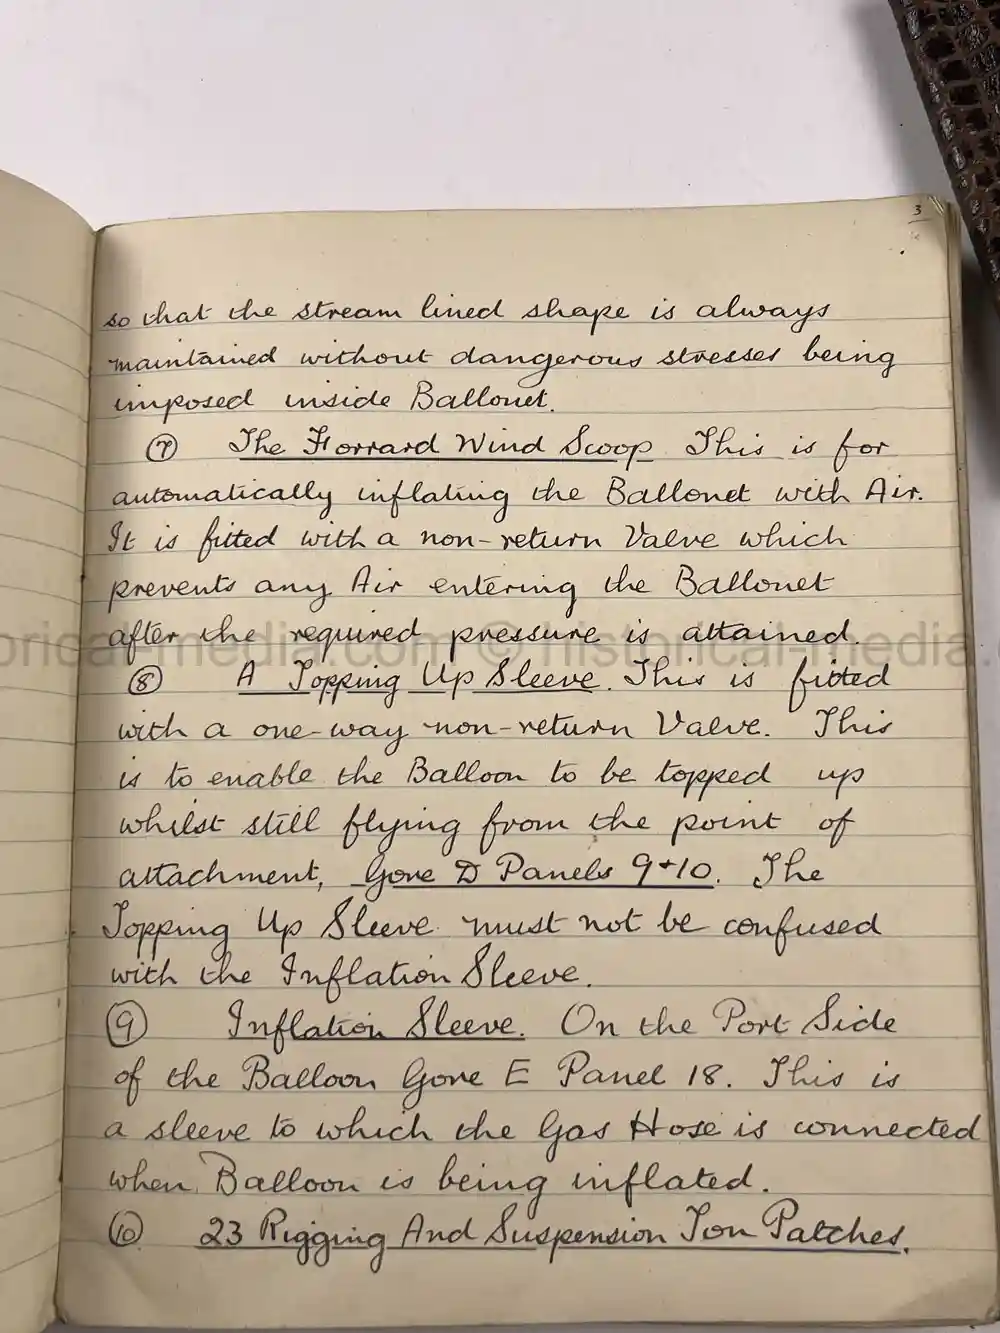 3
so that the stream lined shape is always
maintained without dangerous stresses being
imposed inside Ballonet.
⑦ The Forrard Wind Scoop This is for
automatically inflating the Ballonet with Air.
It is fitted with a non-return Valve which
prevents any Air entering the Ballonet
after the required pressure is attained.
orical-media.com © historical-media.c
⑧ A Topping Up Sleeve. This is fitted
with a one-way non-return Valve. This
is to enable the Balloon to be topped up
whilst still flying from the point of
attachment, Gore D Panels 9+10. The
Topping Up Sleeve must not be confused
with the Inflation Sleeve.
⑨ Inflation Sleeve. On the Port Side
of the Balloon Gore E Panel 18. This is
a sleeve to which the Gas Hose is connected
when Balloon is being inflated.
⑩ 23 Rigging And Suspension Ton Patches.